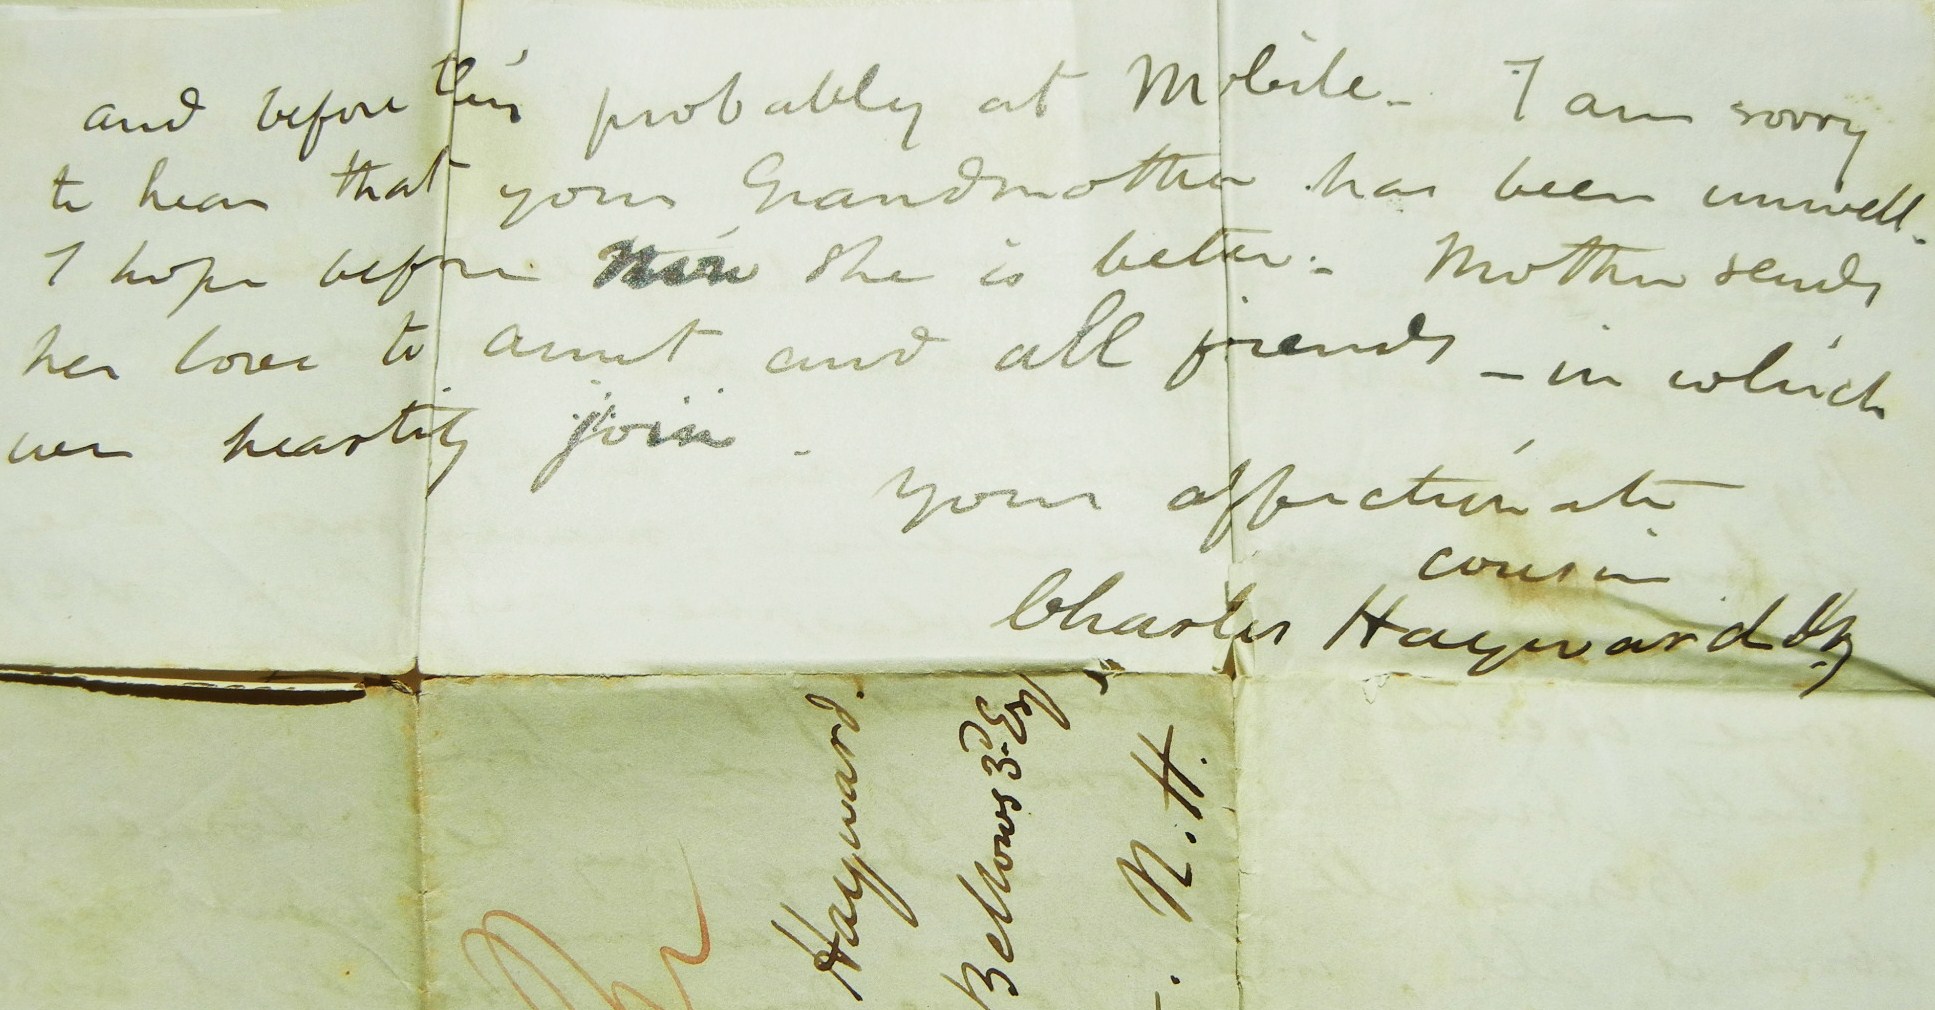 and before this probably at Mobile - I am sorry
to hear that your Grandmother has been unwell.
I hope before now she is better. - Mother sends
her love to aunt and all friends - in which
we heartily join.
Your affectionate
cousin
Charles Hayward Jr
Hayward.
Bellows 3d Esq
N. H.